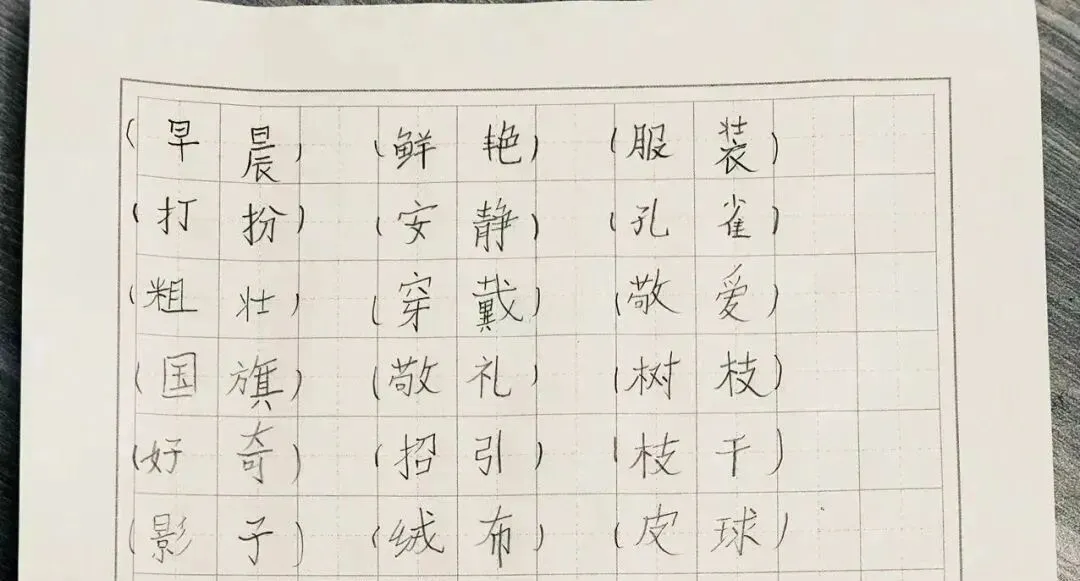 (早晨) (鲜艳) (服装)
(打扮) (安静) (孔雀)
(粗壮) (穿戴) (敬爱)
(国旗) (敬礼) (树枝)
(好奇) (招引) (枝干)
(影子) (绒布) (皮球)